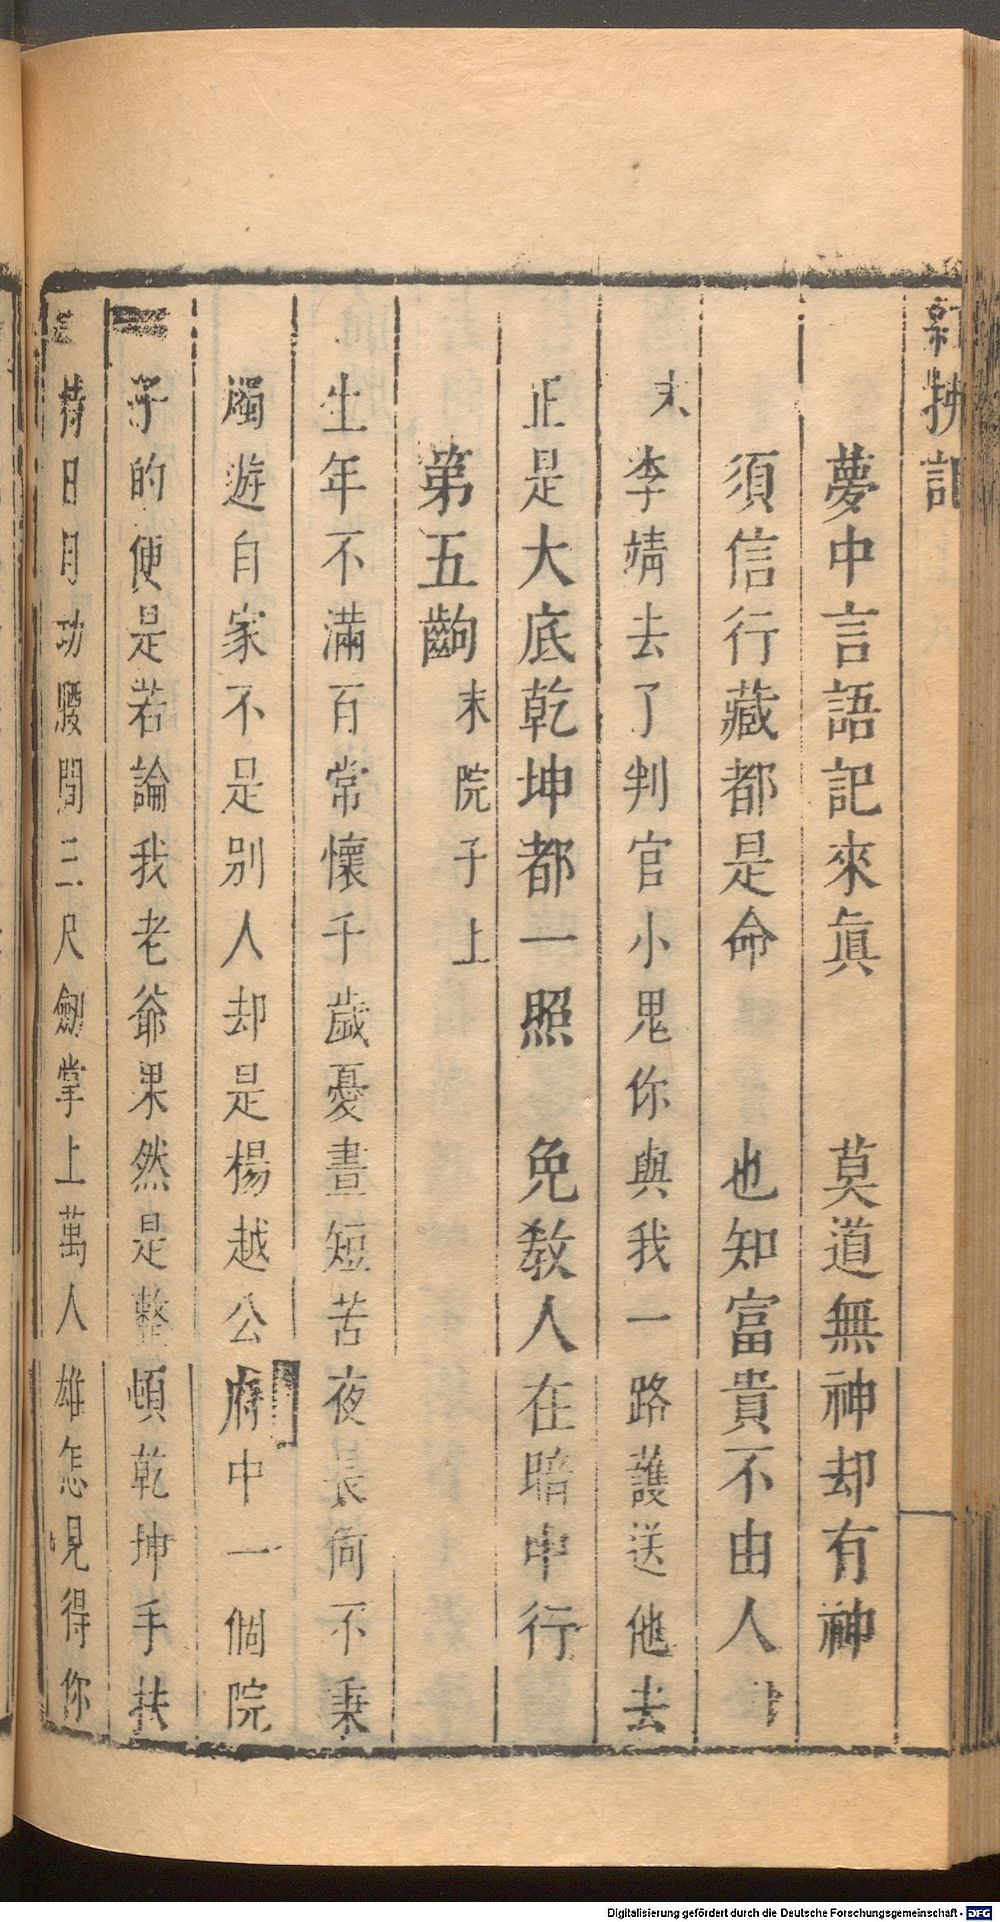 紅拂記
夢中言語記來眞　莫道無神却有神
須信行藏都是命　也知富貴不由人
末　李靖去了判官小鬼你與我一路護送他去
正是大底乾坤都一照　免教人在暗中行
第五齣　末院子上
生年不滿百常懷千歲憂晝短苦夜長何不秉
燭遊自家不是別人却是楊越公府中一個院
子的便是若論我老爺果然是整頓乾坤手扶
持日月功腰間三尺劒掌上萬人雄怎見得你
Digitalisierung gefördert durch die Deutsche Forschungsgemeinschaft - DFG